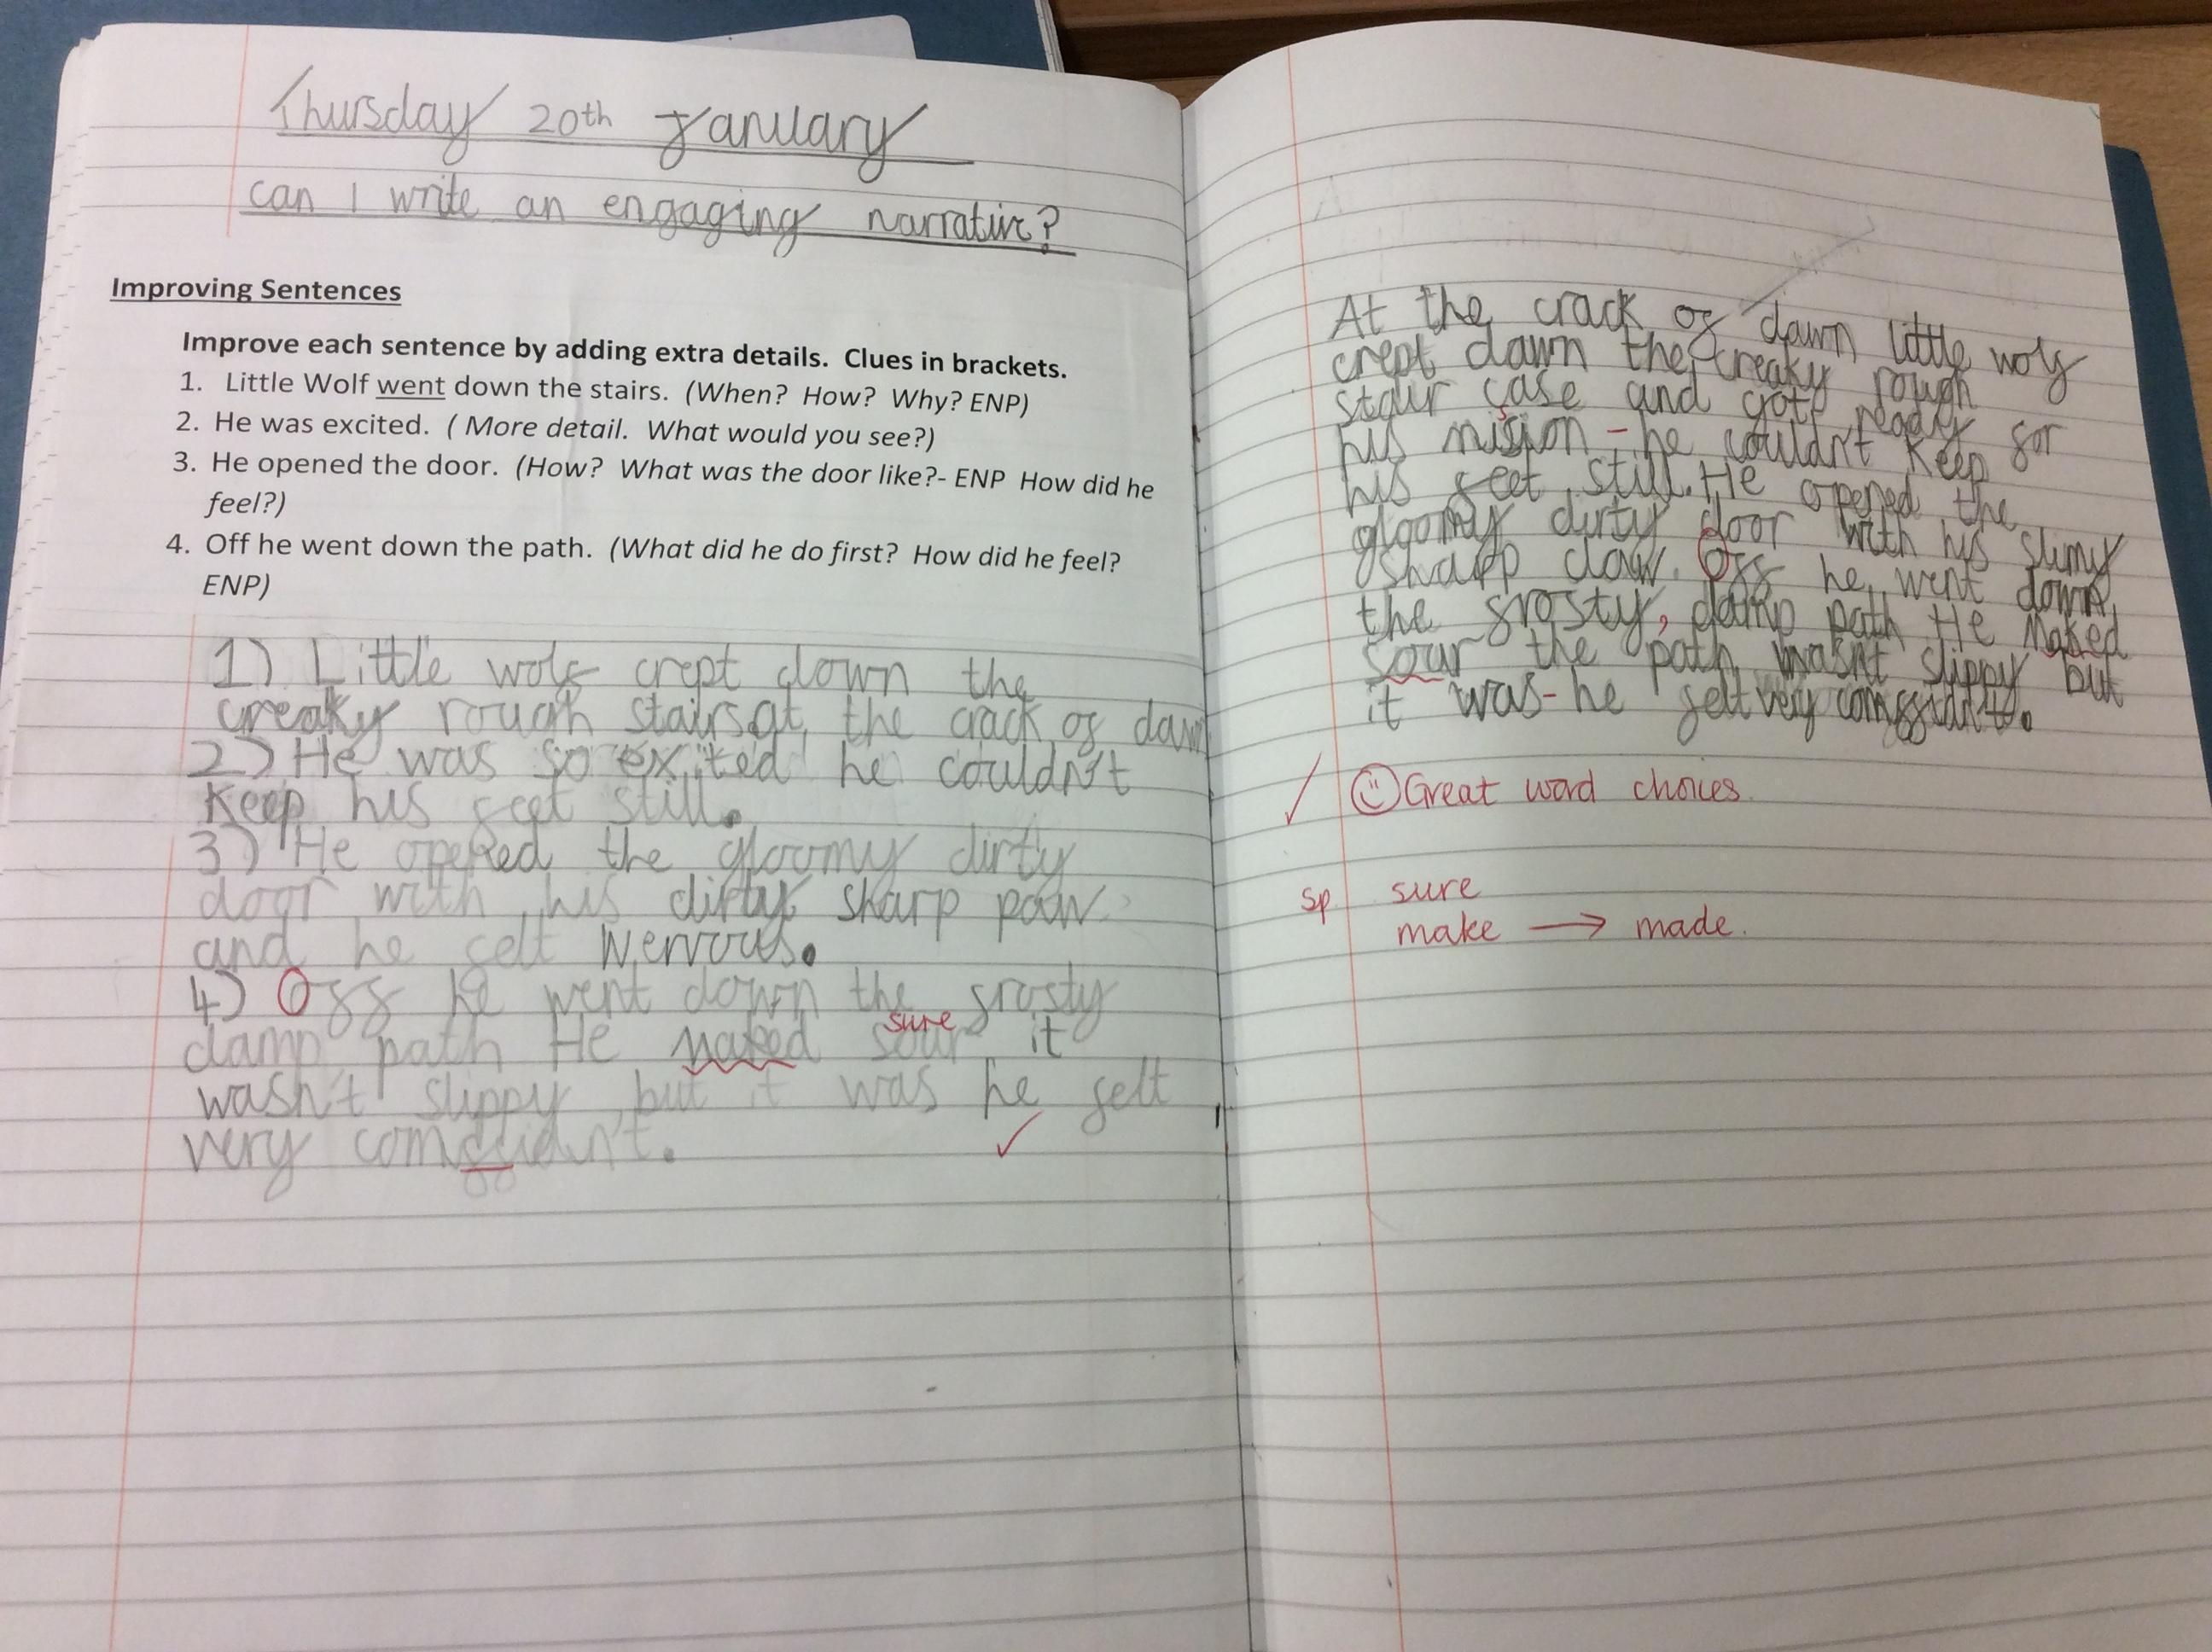 Thursday 20th January
can I write an engaging narrative?
Improving Sentences
Improve each sentence by adding extra details. Clues in brackets.
1. Little Wolf went down the stairs. (When? How? Why? ENP)
2. He was excited. ( More detail. What would you see?)
3. He opened the door. (How? What was the door like?- ENP How did he
feel?)
4. Off he went down the path. (What did he do first? How did he feel?
ENP)
1) Little wolf crept down the
creaky rough stairs at the crack of dawn
2) He was so exited he couldn't
Keep his feet still.
3) He opened the gloomy dirty
door with his dirty sharp
and he felt nervous.
4) Off he went down the frosty
sure
damp path He maked sour it
wasn't slippy but it was he felt
very
At the crack of dawn little wolf
crept dawn the creaky rough
stair case and got ready for
his mision - he couldn't Keep
his feet still. He opened the
gloomy dirty door with his slimy
sharp claw. Off he went down
the frosty, damp path He Maked
sour the path wasnt slippy but
it was- he felt very
✓ Great word choices
sp sure
make → made.